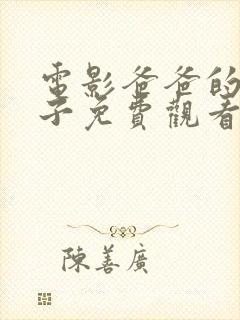 電影爸爸的
子免費觀看
陳善廣